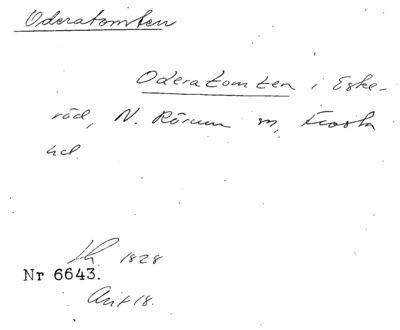 Oderatomten
Oderatomten i Eske-
röd, N. Rörum sn, Frosta
hd.
Lh 1828
Nr 6643.
Akt 18.